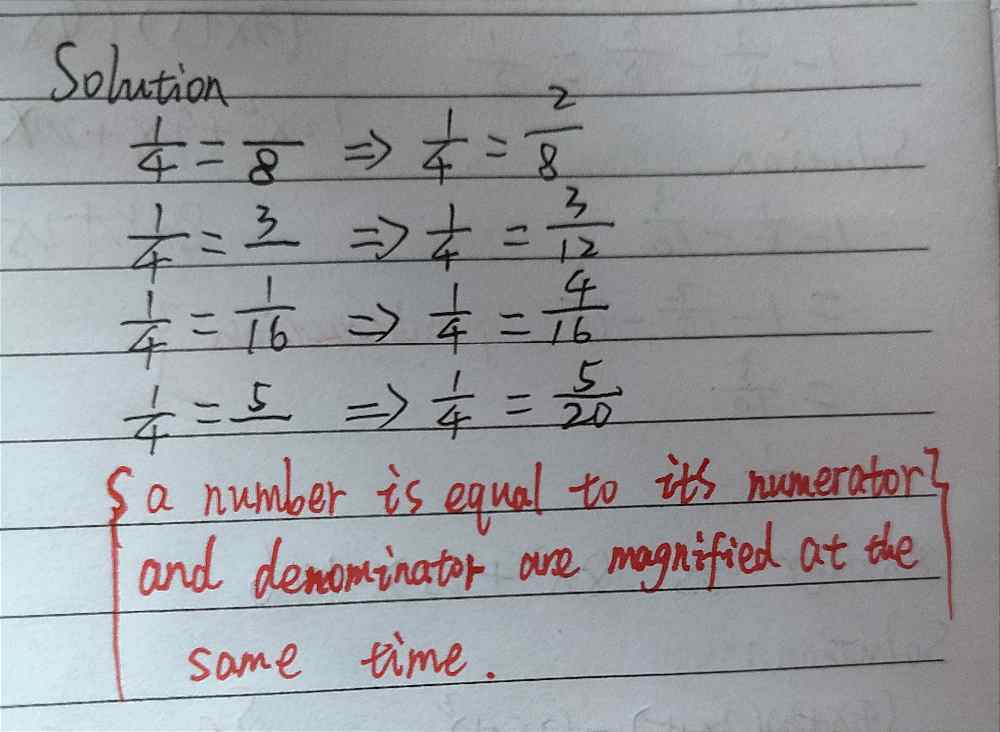 Solution
1/4 = /8 ⇒ 1/4 = 2/8
1/4 = 3/ ⇒ 1/4 = 3/12
1/4 = 1/16 ⇒ 1/4 = 4/16
1/4 = 5/ ⇒ 1/4 = 5/20
{a number is equal to its numerator}
and denominator are magnified at the
same time.